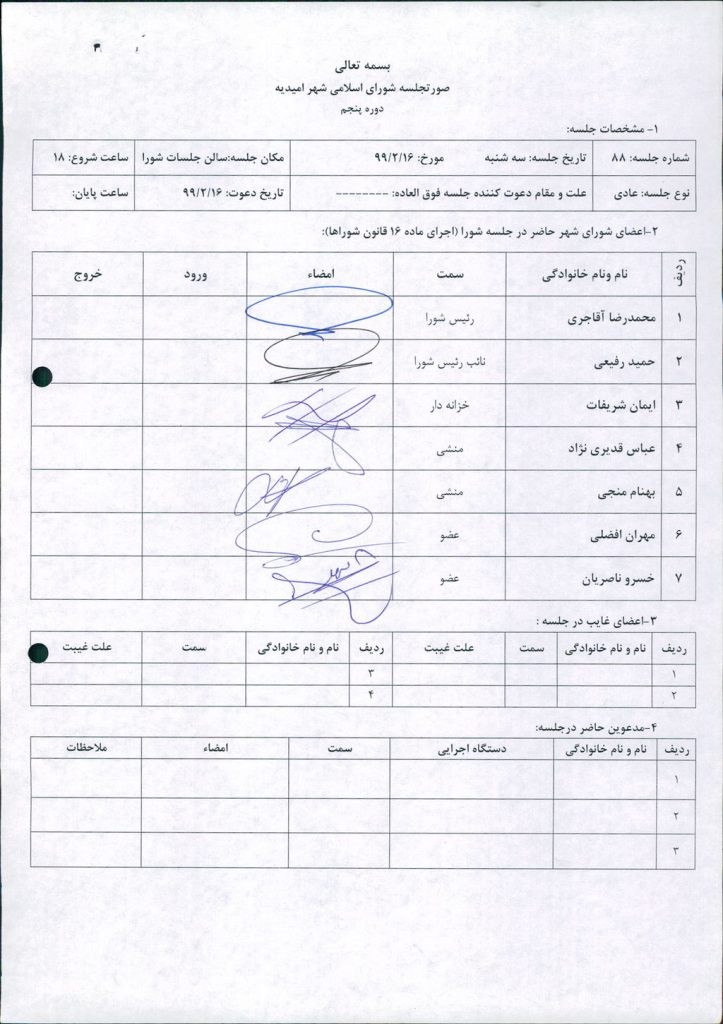 بسمه تعالی
صورتجلسه شورای اسلامی شهر امیدیه
دوره پنجم
۱- مشخصات جلسه:
شماره جلسه: ۸۸ تاریخ جلسه: سه شنبه مورخ: ۹۹/۲/۱۶ مکان جلسه:سالن جلسات شورا ساعت شروع: ۱۸
نوع جلسه: عادی علت و مقام دعوت کننده جلسه فوق العاده: -------- تاریخ دعوت: ۹۹/۲/۱۶ ساعت پایان:
۲-اعضای شورای شهر حاضر در جلسه شورا (اجرای ماده ۱۶ قانون شوراها):
ردیف نام ونام خانوادگی سمت امضاء ورود خروج
۱ محمدرضا آقاجری رئیس شورا
۲ حمید رفیعی نائب رئیس شورا
۳ ایمان شریفات خزانه دار
۴ عباس قدیری نژاد منشی
۵ بهنام منجی منشی
۶ مهران افضلی عضو
۷ خسرو ناصریان عضو
۳-اعضای غایب در جلسه :
ردیف نام و نام خانوادگی سمت علت غیبت ردیف نام و نام خانوادگی سمت علت غیبت
۱ ۳
۲ ۴
۴-مدعوین حاضر درجلسه:
ردیف نام و نام خانوادگی دستگاه اجرایی سمت امضاء ملاحظات
۱
۲
۳